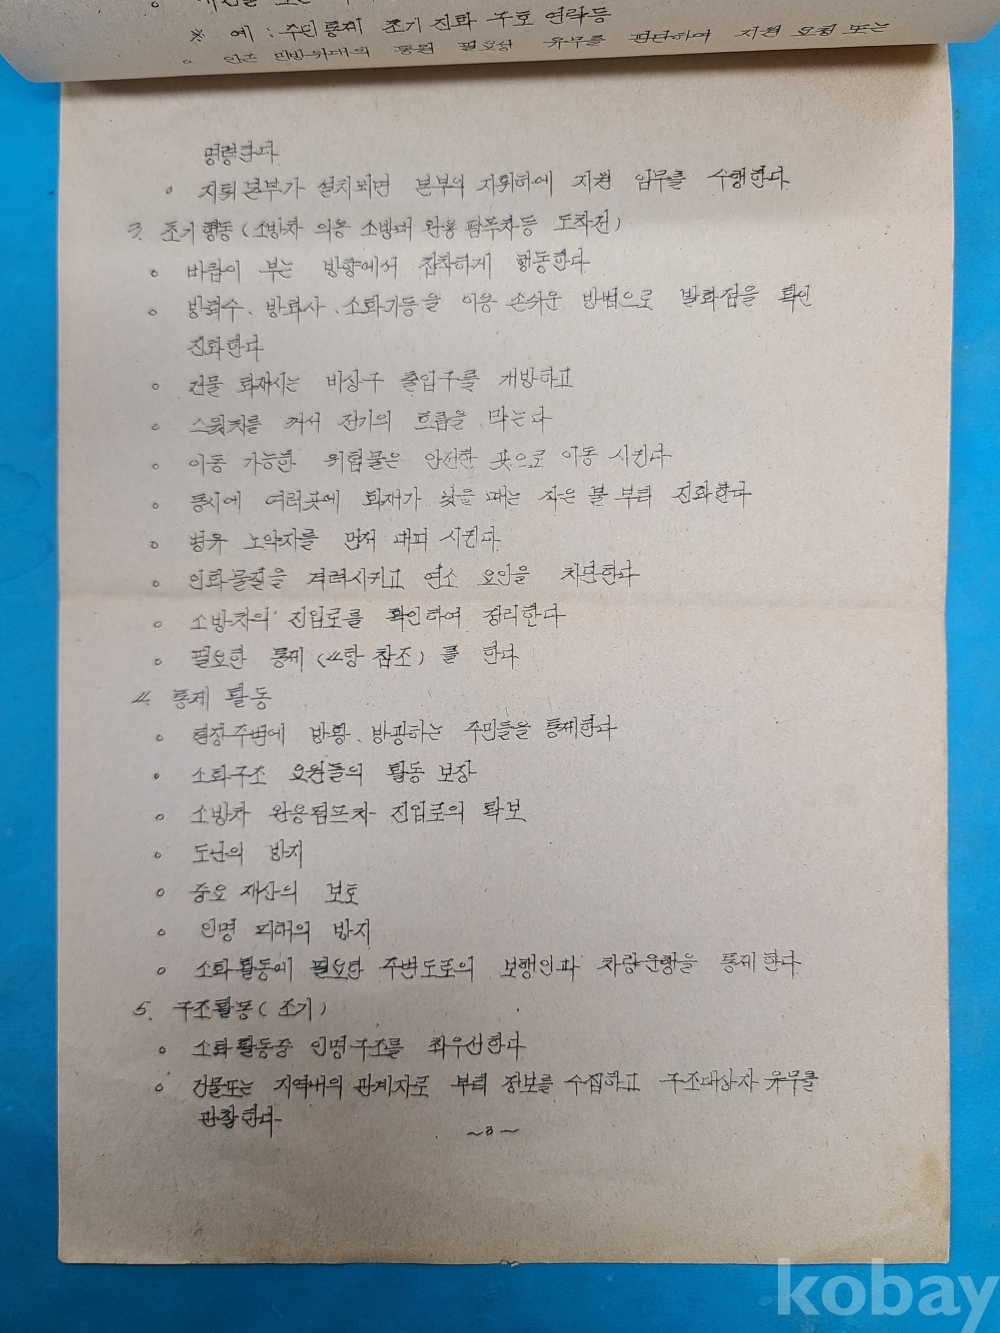 ※ 예 : 주민통제 초기 진화 구호 연락등
◦ 인근 민방위대의 동원 필요성 유무를 판단하여 지원 요청 또는
명령한다
◦ 지휘본부가 설치되면 본부의 지휘하에 지원 임무를 수행한다
3. 초기행동 (소방차 의용 소방대 완용 펌프차등 도착전)
◦ 바람이 부는 방향에서 침착하게 행동한다
◦ 방화수, 방화사, 소화기등을 이용 손쉬운 방법으로 발화점을 확인
진화한다
◦ 건물 화재시는 비상구 출입구를 개방하고
◦ 스윗치를 꺼서 전기의 흐름을 막는다
◦ 이동 가능한 위험물은 안전한 곳으로 이동 시킨다
◦ 동시에 여러곳에 화재가 났을 때는 작은 불 부터 진화한다
◦ 병유 노약자를 먼저 대피 시킨다
◦ 인화물질을 격리시키고 연소 요인을 차단한다
◦ 소방차의 진입로를 확인하여 정리한다
◦ 필요한 통제 (4항 참조) 를 한다
4. 통제 활동
◦ 현장주변에 방황, 방광하는 주민들을 통제한다
◦ 소화구조 요원들의 활동 보장
◦ 소방차 완용펌프차 진입로의 확보
◦ 도난의 방지
◦ 중요 재산의 보호
◦ 인명 피해의 방지
◦ 소화활동에 필요한 주변도로의 보행인과 차량운행을 통제한다
5. 구조활동 (초기)
◦ 소화활동중 인명구조를 최우선한다
◦ 건물또는 지역내의 관계자로 부터 정보를 수집하고 구조대상자 유무를
관찰한다
~3~
kobay